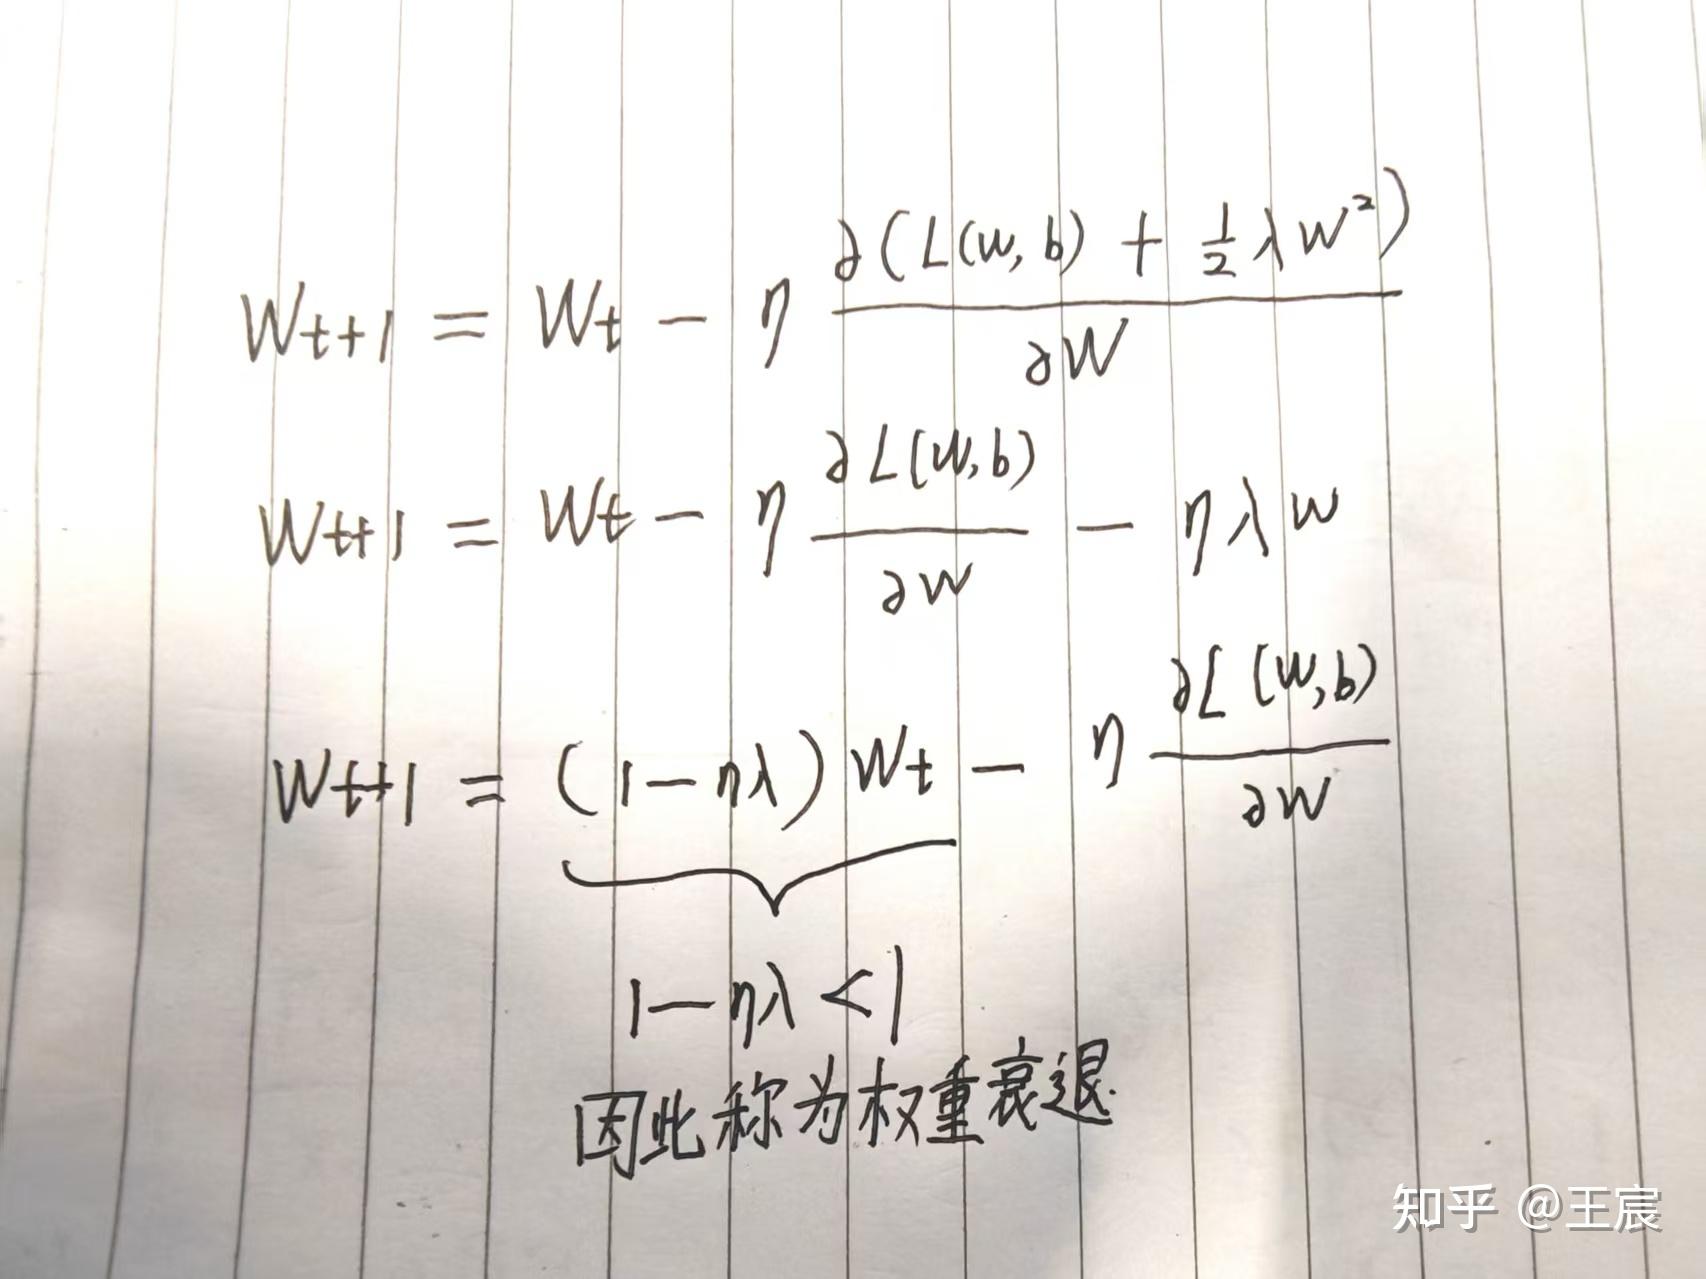 W_{t+1} = W_t - η ∂(L(w,b) + ½λW²) / ∂W
W_{t+1} = W_t - η ∂L(w,b) / ∂w - ηλw
W_{t+1} = (1-ηλ)W_t - η ∂L(w,b) / ∂w
1-ηλ<1
因此称为权重衰退
知乎 @王宸